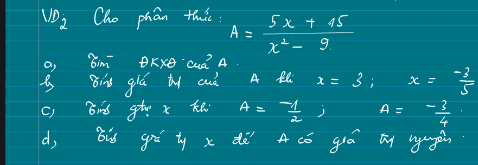 VD2 Cho phân thức: A = (5x + 15)/(x² - 9)
a, Tìm ĐKXĐ của A.
b, Tính giá trị của A khi x = 3; x = -3/5
c, Tính gtrị x khi A = -1/2; A = -3/4.
d, Tìm giá trị x để A có giá trị nguyên.